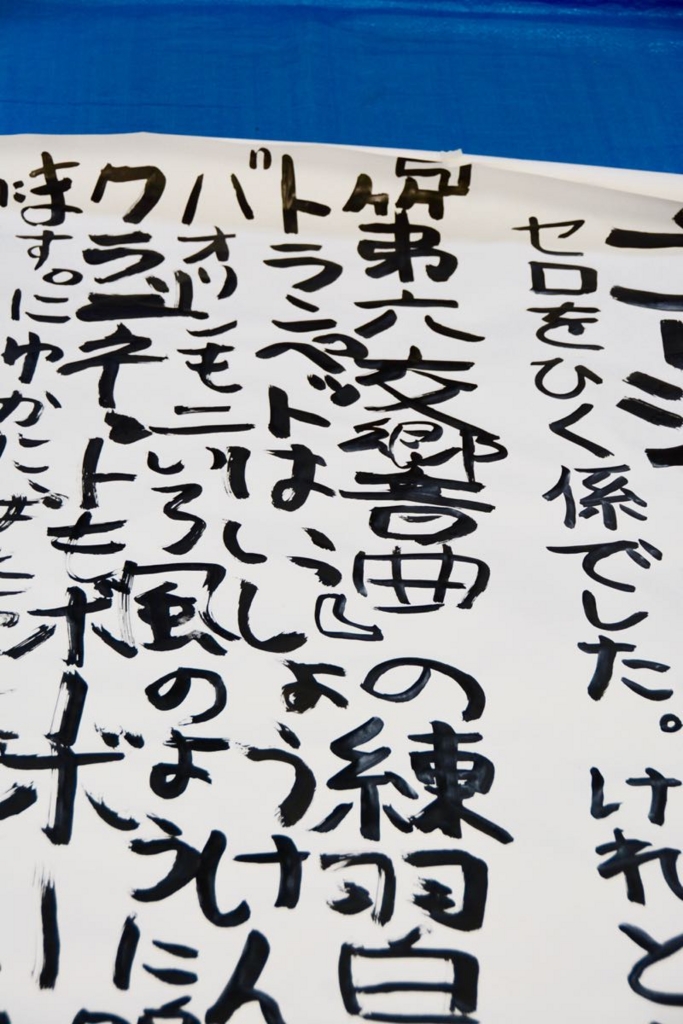 ーシ
セロをひく係でした。けれど
『第六交響曲』の練習
トランペットはいっしょうけん
バオリンも二いろ風のように
クラリネットもボーボー
ます。に